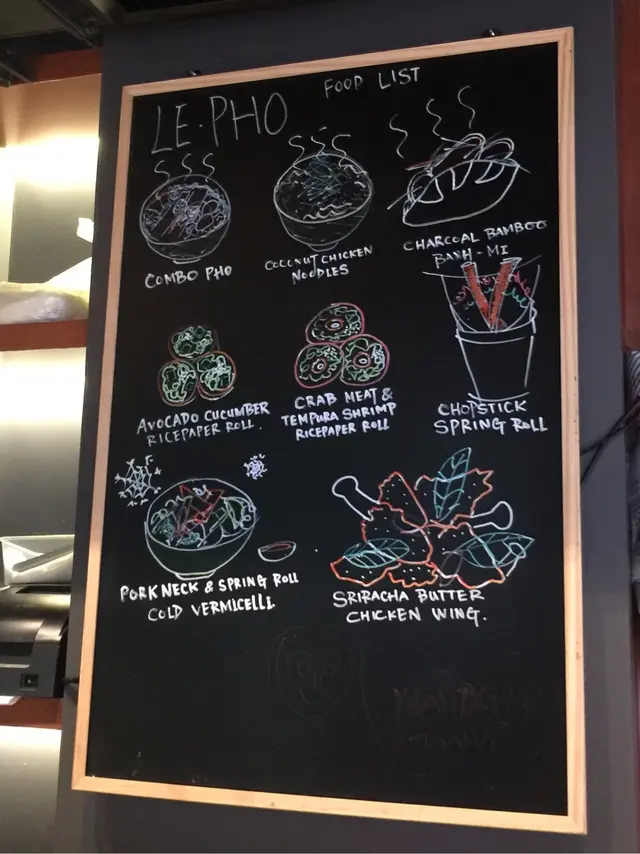 FOOD LIST
LE·PHO
COMBO PHO
COCONUT CHICKEN
NOODLES
CHARCOAL BAMBOO
BANH-MI
AVOCADO CUCUMBER
RICEPAPER ROLL.
CRAB MEAT &
TEMPURA SHRIMP
RICEPAPER ROLL
CHOPSTICK
SPRING ROLL
PORK NECK & SPRING ROLL
COLD VERMICELLI.
SRIRACHA BUTTER
CHICKEN WING.